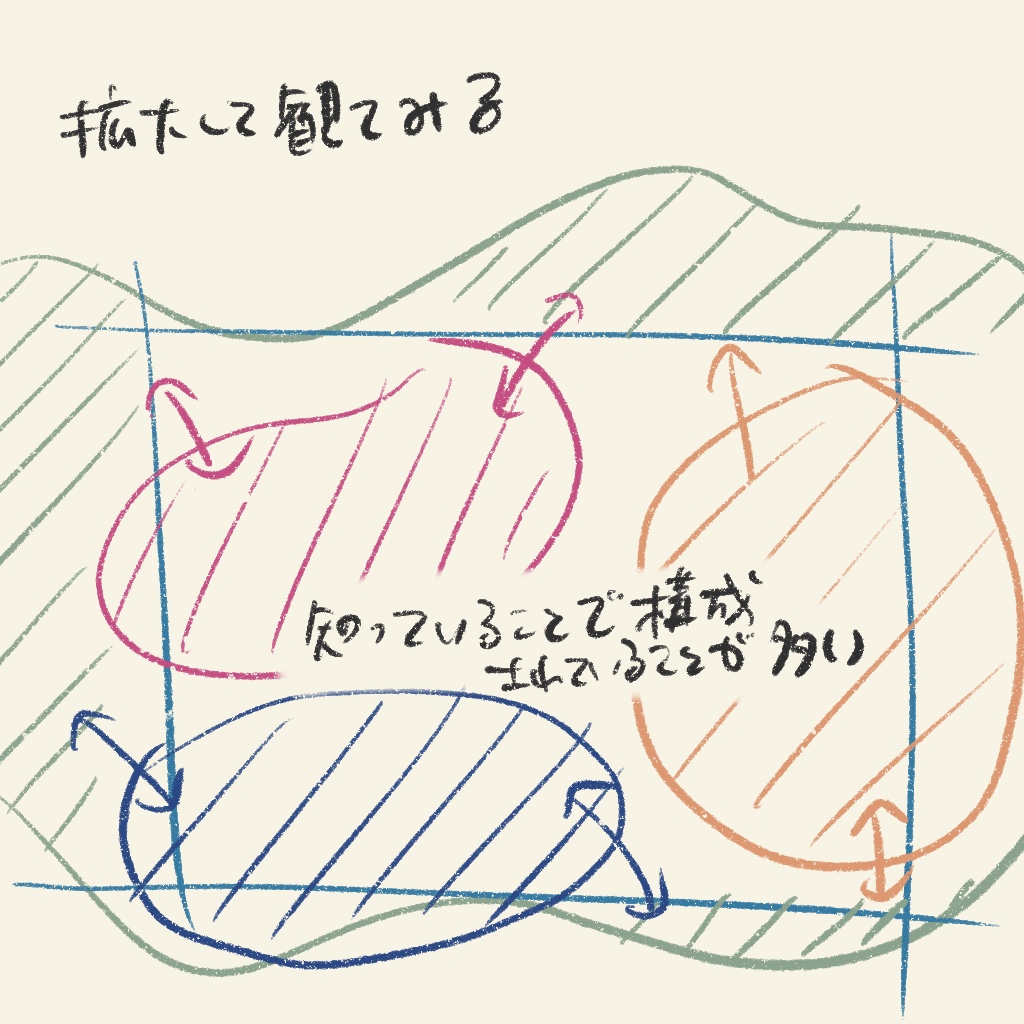 拡大して観てみる
知っていることで構成
されていることが多い